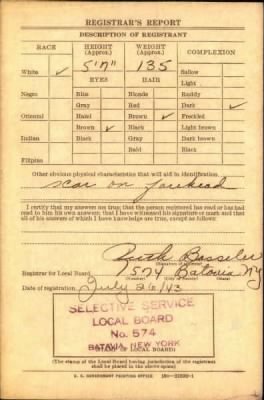 REGISTRAR'S REPORT
DESCRIPTION OF REGISTRANT
RACE HEIGHT (Approx.) WEIGHT (Approx.) COMPLEXION
White ✓ 5'7" 135 Sallow
EYES HAIR Light
Negro Blue Blonde Ruddy
Gray Red Dark ✓
Oriental Hazel Brown ✓ Freckled
Brown ✓ Black Light brown
Indian Black Gray Dark brown
Bald Black
Filipino
Other obvious physical characteristics that will aid in identification
scar on forehead
I certify that my answers are true; that the person registered has read or has had
read to him his own answers; that I have witnessed his signature or mark and that
all of his answers of which I have knowledge are true, except as follows:
Ruth Basseler
(Signature of registrar)
Registrar for Local Board 574 Batavia NY
(Number) (City or county) (State)
Date of registration July 26/43
SELECTIVE SERVICE
LOCAL BOARD
No. 574
BATAVIA NEW YORK
(STAMP OF LOCAL BOARD)
(The stamp of the Local Board having jurisdiction of the registrant
shall be placed in the above space)
U. S. GOVERNMENT PRINTING OFFICE